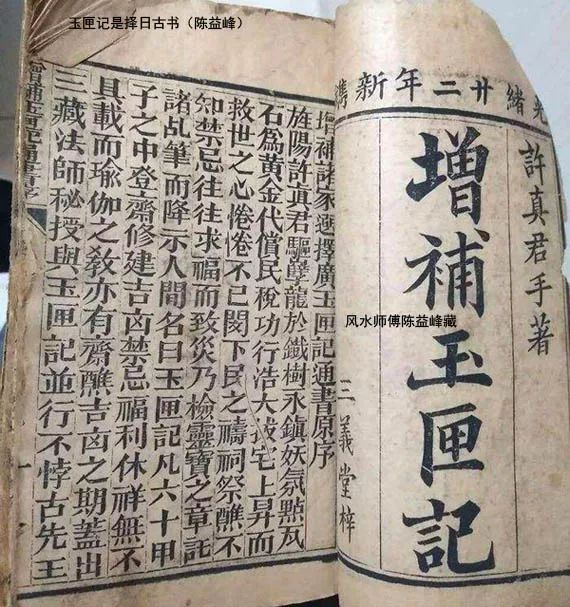 玉匣记是择日古书（陈益峰）
光緒廿二年新鐫
許真君手著
增補玉匣記
三義堂梓
风水师傅陈益峰藏
增補諸家選擇廣玉匣記通書原序
旌陽許真君驅孽龍於鐵樹永鎮妖氛點瓦
石爲黃金代償民稅功行浩大拔宅上昇而
救世之心惓惓不已閔下民之禱祠祭醮不
知禁忌往往求福而致災乃檢靈寶之章託
諸乩筆而降示人間名曰玉匣記凡六十甲
子之中登齋修建吉凶禁忌福利休祥無不
具載而瑜伽之教亦有齋醮吉凶之期蓋出
三藏法師秘授與玉匣記並行不悖古先王
增補玉匣記通書序
一